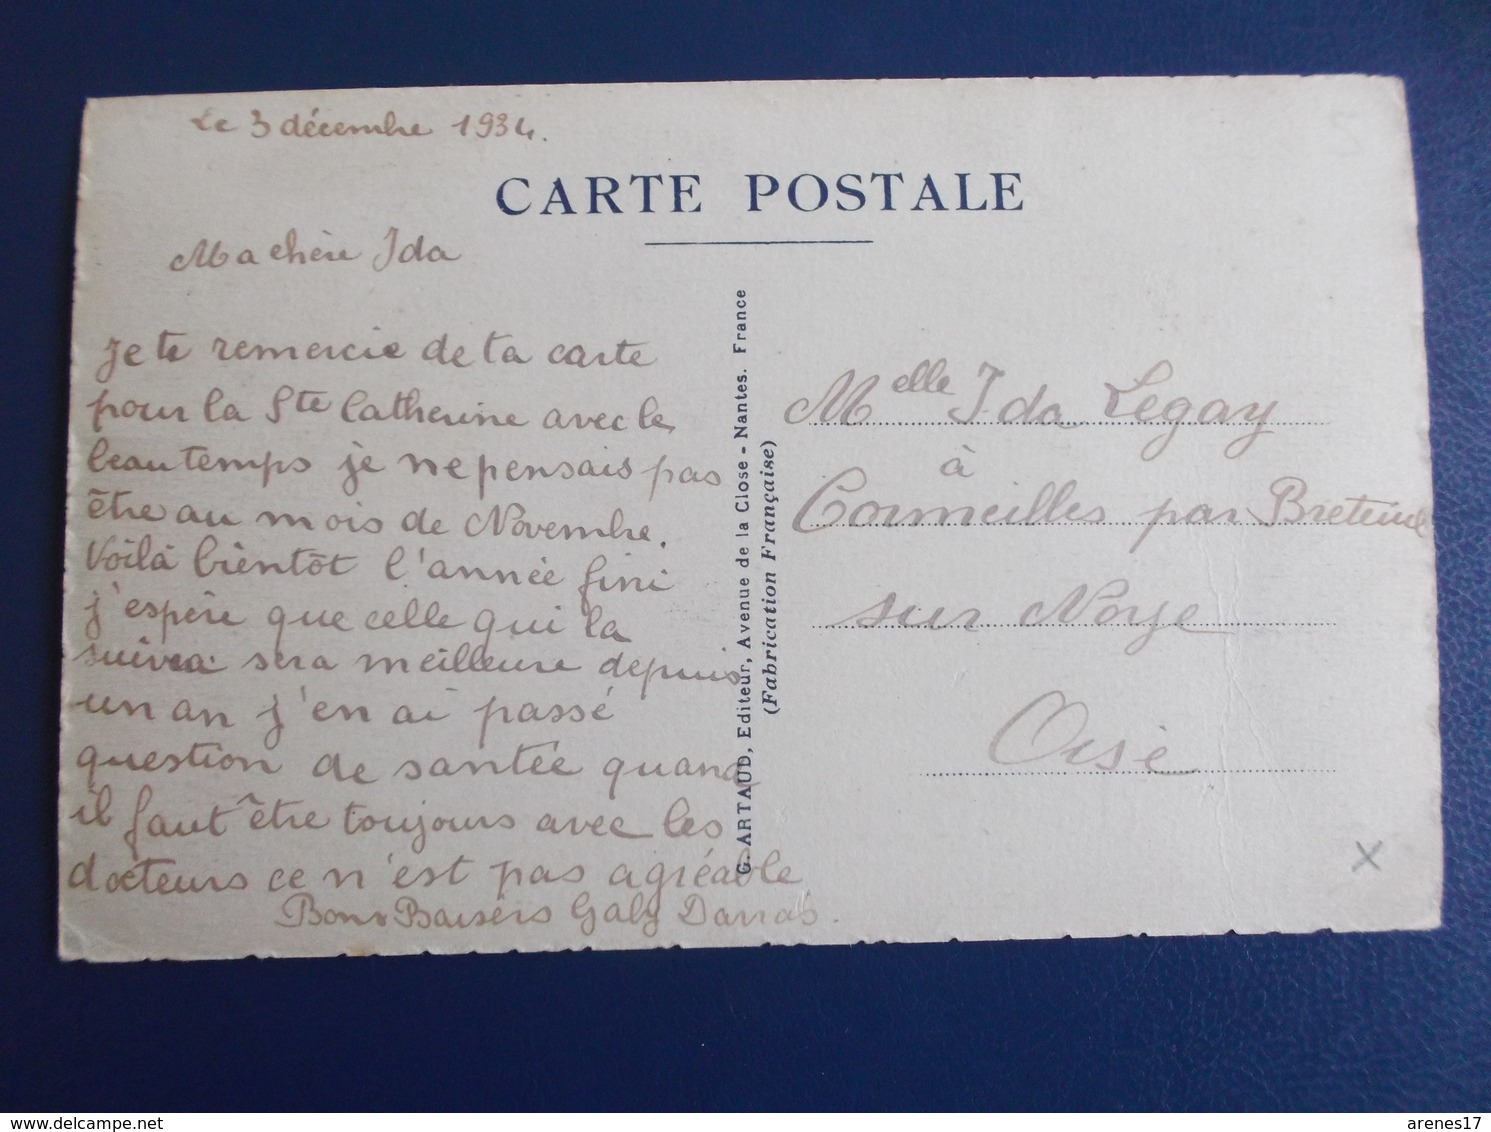 Le 3 décembre 1934.
CARTE POSTALE
Ma chère Ida
Je te remercie de ta carte
pour la Ste Catherine avec le
beau temps je ne pensais pas
être au mois de Novembre.
Voilà bientôt l'année fini
j'espère que celle qui la
suivra sera meilleure depuis
un an j'en ai passé
question de santée quand
il faut être toujours avec les
docteurs ce n'est pas agréable
Bons Baisers Gaby Darras.
G. ARTAUD, Editeur, Avenue de la Close - Nantes. France
(Fabrication Française)
Melle Ida Legay
à
Cormeilles par Breteuil
sur Noye
Oise
X
arenes17